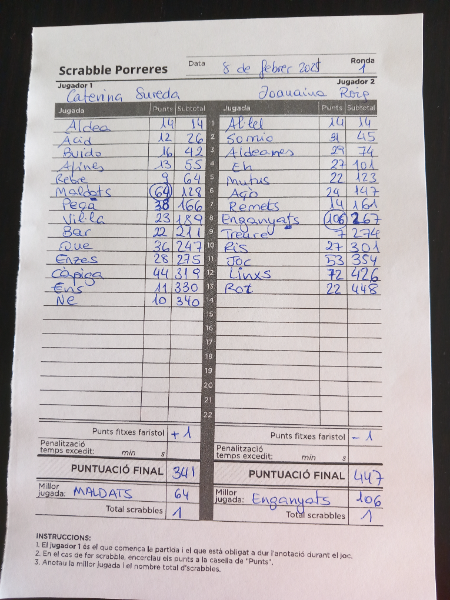 Scrabble Porreres Data 8 de febrer 2025 Ronda 1
Jugador 1 Jugador 2
Caterina Sureda Joanaina Roig
Jugada Punts Subtotal Jugada Punts Subtotal
Aldea 14 14 1 Altel 14 14
Àcid 12 26 2 Somio 31 45
Buido 16 42 3 Aldeanes 29 74
Afines 13 55 4 Eh 27 101
Rebre 9 64 5 Mutus 22 123
Maldats 64 128 6 Agò 24 147
Pegà 38 166 7 Remets 14 161
Vil·la 23 189 8 Enganyats 106 267
Bar 22 211 9 Treure 7 274
Que 36 247 10 Pis 27 301
Enzes 28 275 11 Joc 53 354
Càpiga 44 319 12 Linxs 72 426
Ens 11 330 13 Rot 22 448
Ne 10 340 14
15
16
17
18
19
20
21
22
Punts fitxes faristol +1 Punts fitxes faristol -1
Penalització temps excedit: min s Penalització temps excedit: min s
PUNTUACIÓ FINAL 341 PUNTUACIÓ FINAL 447
Millor jugada: MALDATS 64 Millor jugada: Enganyats 106
Total scrabbles 1 Total scrabbles 1
INSTRUCCIONS:
1. El jugador 1 és el que comença la partida i el que està obligat a dur l'anotació durant el joc.
2. En el cas de fer scrabble, encerclau els punts a la casella de "Punts".
3. Anotau la millor jugada i el nombre total d'scrabbles.